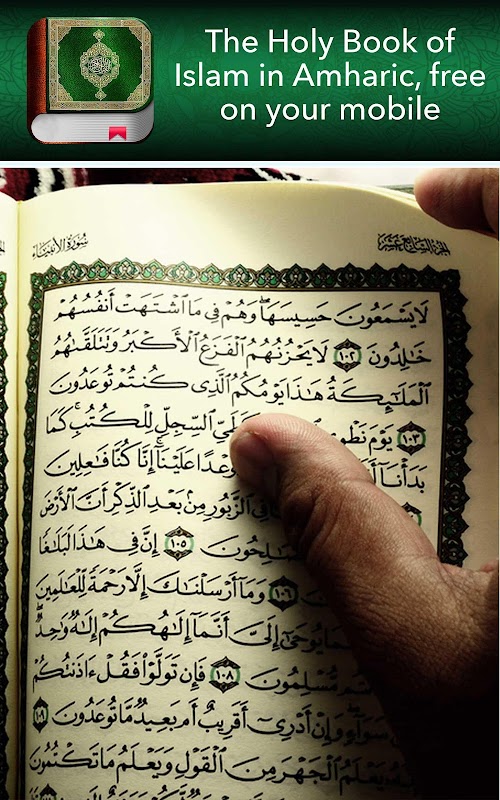 The Holy Book of
Islam in Amharic, free
on your mobile
الجزء السابع عشر
سورة الأنبياء
لَا يَسْمَعُونَ حَسِيسَهَا ۖ وَهُمْ فِي مَا ٱشْتَهَتْ أَنفُسُهُمْ
خَٰلِدُونَ ١٠٢ لَا يَحْزُنُهُمُ ٱلْفَزَعُ ٱلْأَكْبَرُ وَتَتَلَقَّىٰهُمُ
ٱلْمَلَٰٓئِكَةُ هَٰذَا يَوْمُكُمُ ٱلَّذِي كُنتُمْ تُوعَدُونَ
١٠٣ يَوْمَ ٱلسِّجِلِّ لِلْكُتُبِ ۚ كَمَا
بَدَأْنَآ وَعْدًا عَلَيْنَآ ۚ إِنَّا كُنَّا فَٰعِلِينَ
فِي ٱلزَّبُورِ مِنۢ بَعْدِ ٱلذِّكْرِ أَنَّ ٱلْأَرْضَ
١٠٥ إِنَّ فِي هَٰذَا لَبَلَٰغًا
١٠٦ وَمَآ أَرْسَلْنَٰكَ إِلَّا رَحْمَةً لِّلْعَٰلَمِينَ
يُوحَىٰٓ إِلَيَّ أَنَّمَآ إِلَٰهُكُمْ إِلَٰهٌ وَٰحِدٌ ۖ
مُّسْلِمُونَ ١٠٨ فَإِن تَوَلَّوْا۟ فَقُلْ ءَاذَنتُكُمْ
سَوَآءٍ ۖ وَإِنْ أَدْرِيٓ أَقَرِيبٌ أَم بَعِيدٌ مَّا تُوعَدُونَ ١٠٩
يَعْلَمُ ٱلْجَهْرَ مِنَ ٱلْقَوْلِ وَيَعْلَمُ مَا تَكْتُمُونَ